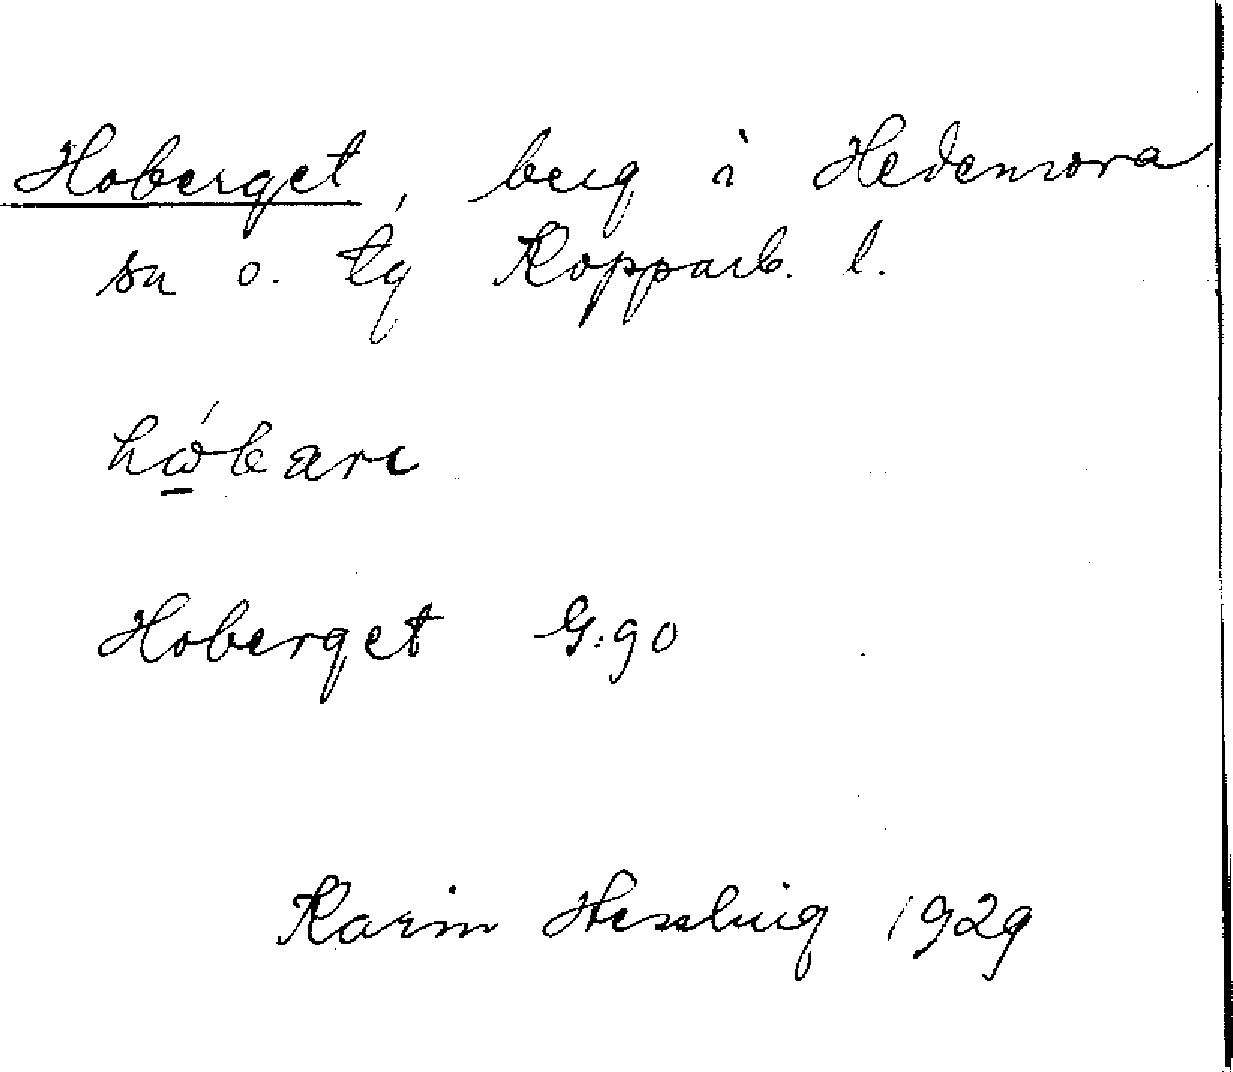 Hoberget, berg i Hedemora
sn o. tg Kopparb. l.
Hoberget G:90
Karin Hessling 1929